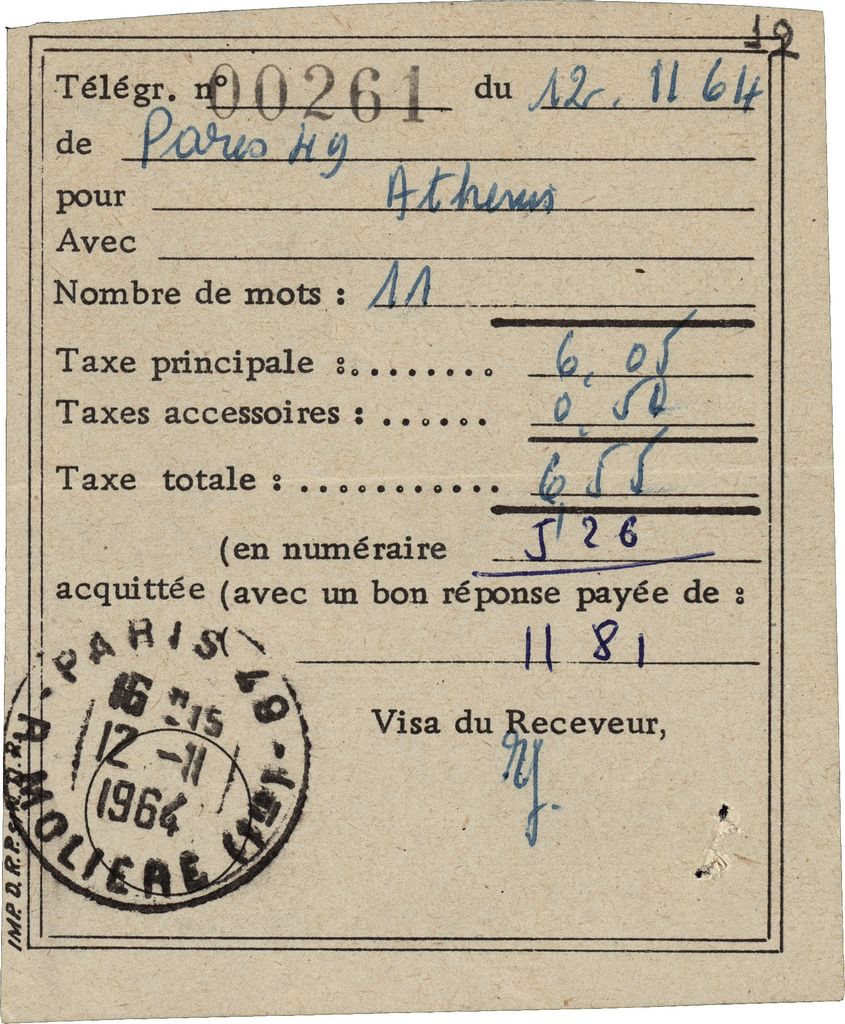 19
Télégr. nº 00261 du 12. 11 64
de Paris 49
pour Athenes
Avec
Nombre de mots : 11
Taxe principale :........ 6,05
Taxes accessoires : ...... 0,50
Taxe totale : ........... 6,55
(en numéraire 5,26
acquittée (avec un bon réponse payée de :
( 11 81
Visa du Receveur,
PARIS 49
16H-15
12-11
1964
R. MOLIERE (1er)
IMP. D. R. P.